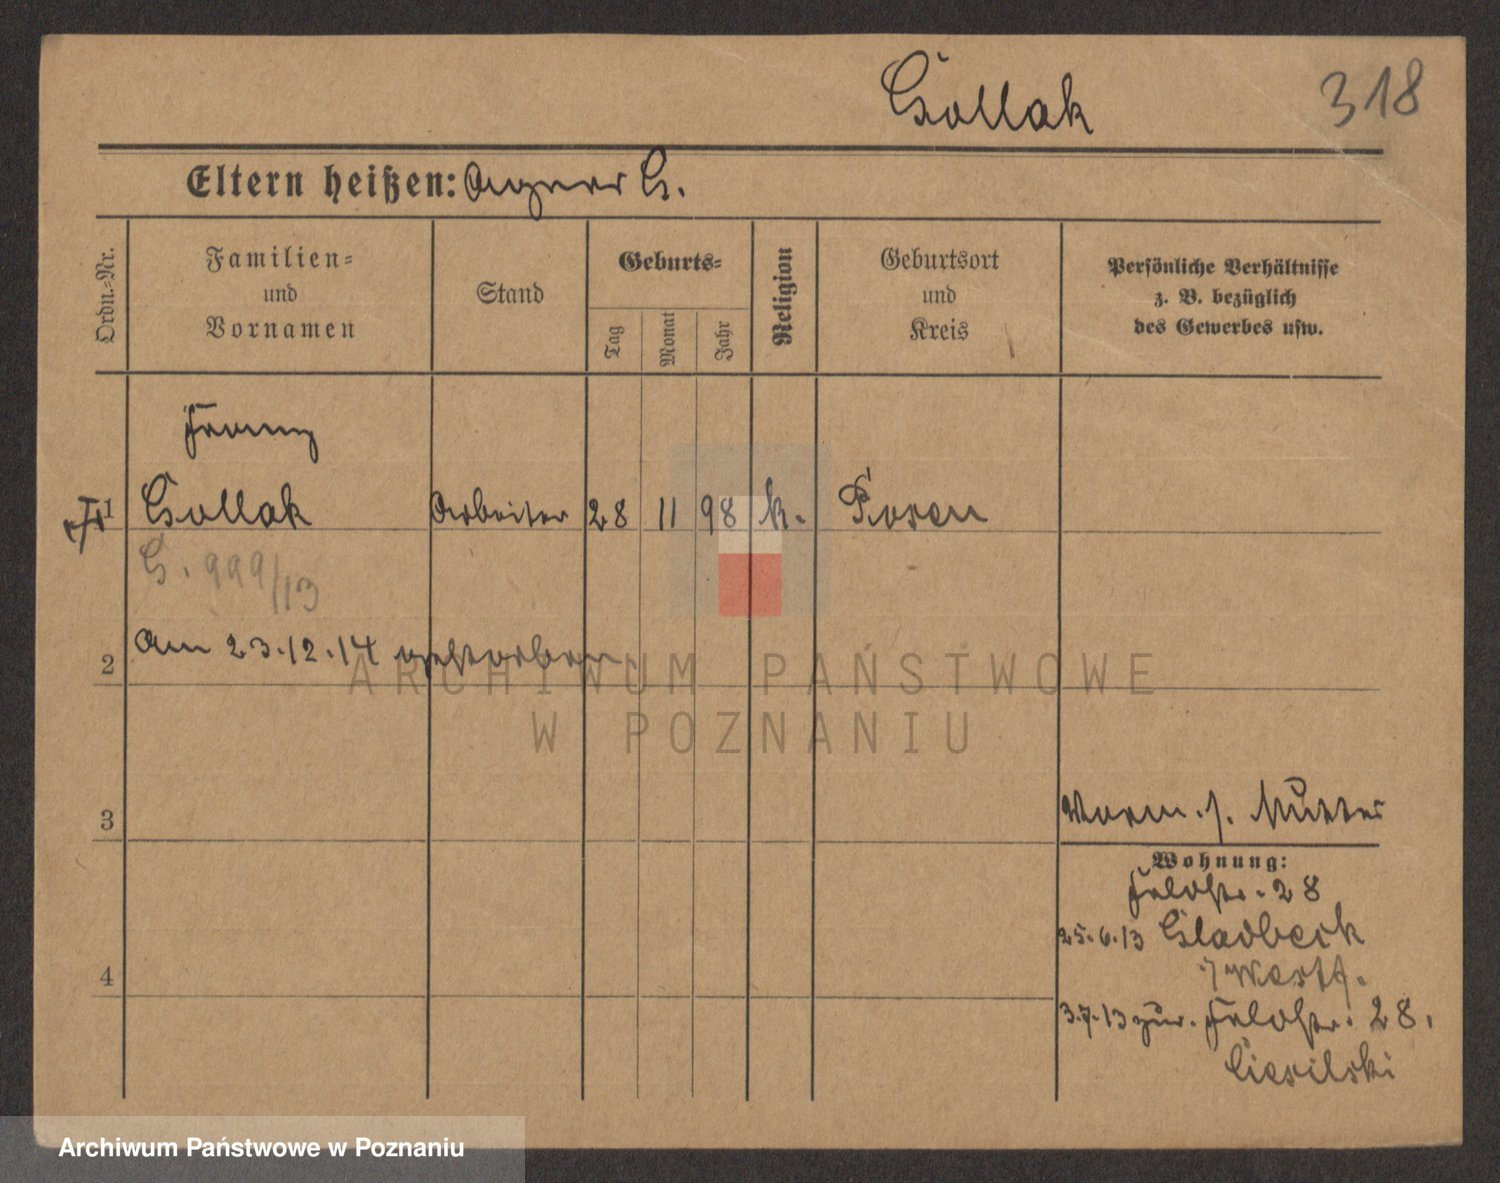 Gollak
318
Eltern heißen: Agnes G.
Ordn.-Nr.
Familien-
und
Vornamen
Stand
Geburts-
Tag
Monat
Jahr
Religion
Geburtsort
und
Kreis
Persönliche Verhältnisse
z. B. bezüglich
des Gewerbes usw.
Franz
1 Gollak Arbeiter 28 11 98 k. Posen
G. 999/13
2 Am 23.12.14 gestorben.
3
Worm. s. Mutter
Wohnung:
Feldstr. 28
25.6.13 Gladbeck
i/Westf.
4
3.7.13 zur. Feldstr. 28.
Ciesilski
ARCHIWUM PAŃSTWOWE
W POZNANIU
Archiwum Państwowe w Poznaniu